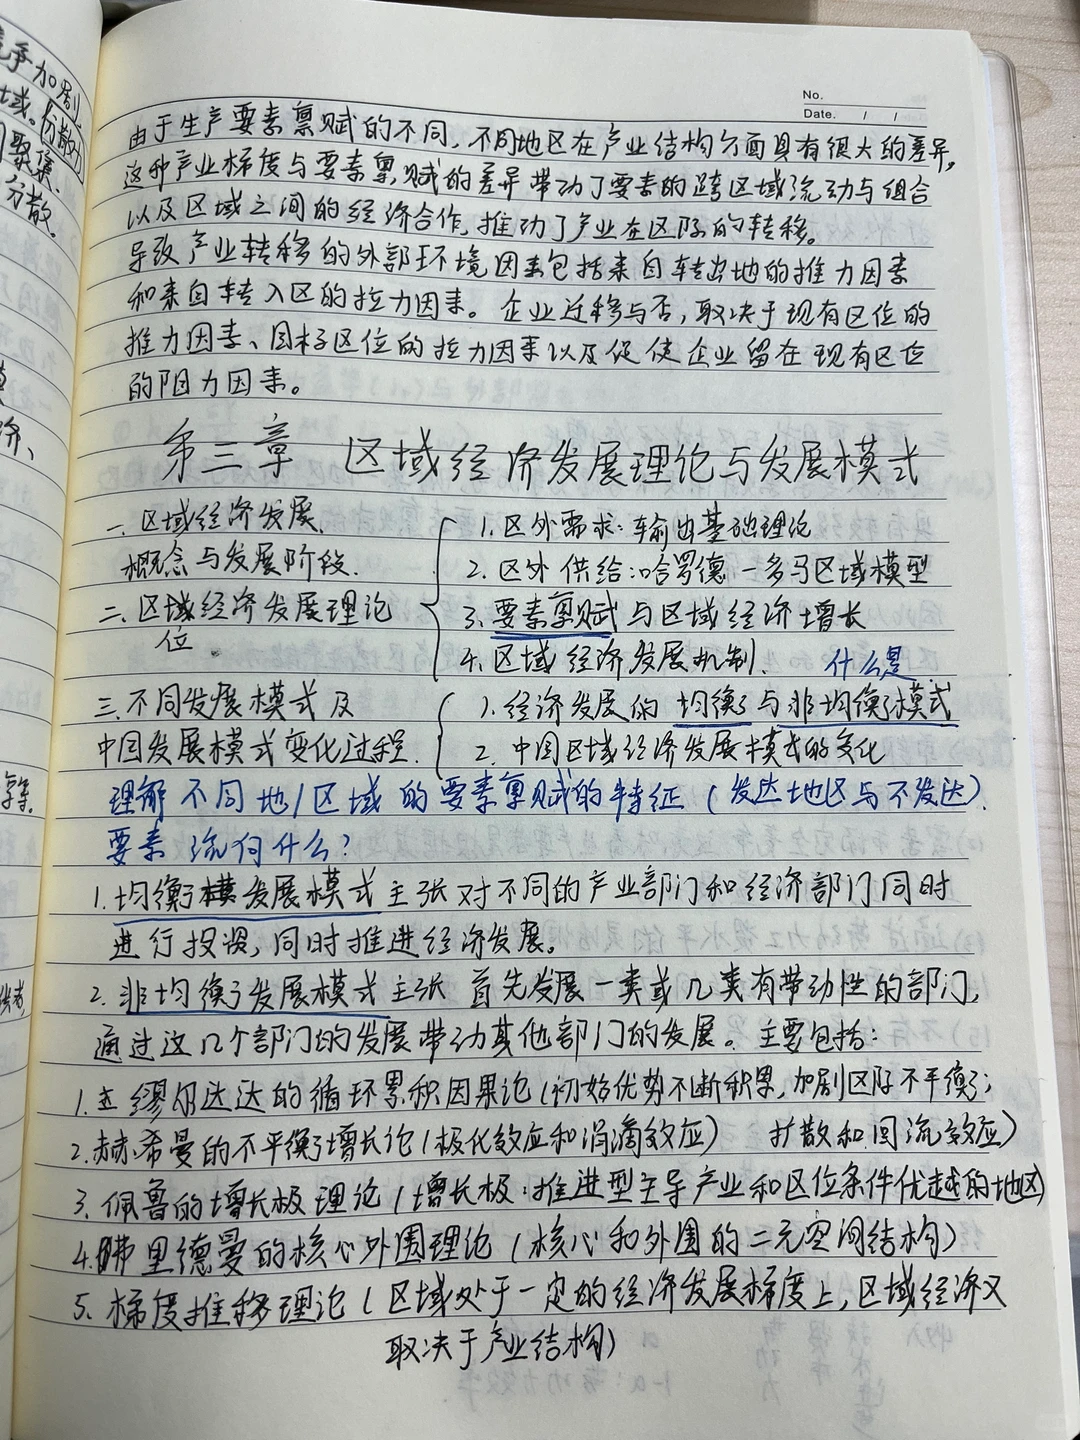 争加剧
域。分散力
聚集.
分散.
济、
No.
Date. / /
由于生产要素禀赋的不同，不同地区在产业结构方面具有很大的差异，
这种产业梯度与要素禀赋的差异带动了要素的跨区域流动与组合
以及区域之间的经济合作，推动了产业在区际的转移。
导致产业转移的外部环境因素包括来自转出地的推力因素
和来自转入区的拉力因素。企业迁移与否，取决于现有区位的
推力因素、目标区位的拉力因素以及促使企业留在现有区位
的阻力因素。
第三章 区域经济发展理论与发展模式
一、区域经济发展
概念与发展阶段.
二、区域经济发展理论
位
1. 区外需求：输出基础理论
2. 区外供给：哈罗德-多马区域模型
3. 要素禀赋与区域经济增长
4. 区域经济发展机制.
什么是
三、不同发展模式及
中国发展模式变化过程.
1. 经济发展的均衡与非均衡模式
2. 中国区域经济发展模式的变化
理解不同地/区域的要素禀赋的特征（发达地区与不发达）.
要素流向什么？
1. 均衡发展模式主张对不同的产业部门和经济部门同时
进行投资，同时推进经济发展。
2. 非均衡发展模式主张首先发展一类或几类有带动性的部门，
通过这几个部门的发展带动其他部门的发展。主要包括：
1. 缪尔达达的循环累积因果论（初始优势不断积累，加剧区际不平衡；
2. 赫希曼的不平衡增长论（极化效应和涓滴效应） 扩散和回流效应）
3. 佩鲁的增长极理论（增长极：推进型主导产业和区位条件优越的地区）
4. 弗里德曼的核心外围理论（核心和外围的二元空间结构）
5. 梯度推移理论（区域处于一定的经济发展梯度上，区域经济又
取决于产业结构）